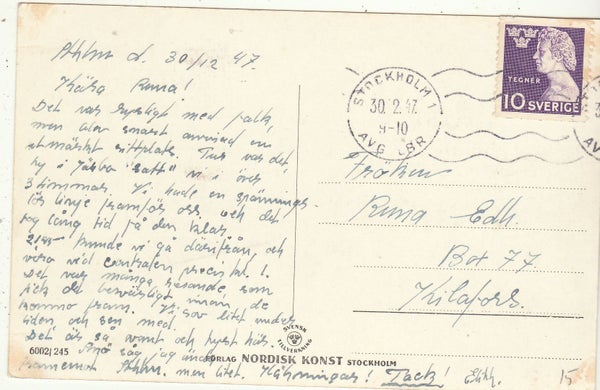 Sthlm d. 30/12 47.
Kära Runa!
Det var hyskligt med folk,
men blev snart anvisad en
utmärkt sittplats. Tur var det,
ty i Järbo "satt" vi i över
3 timmar. Vi hade en spännings-
lös linje framför oss och det
tog lång tid på den klar.
21 kunde vi gå därifrån, och
vera vid centralen precis kl. 1.
Det var många resande som
fick det besvärligt innan de
kommo fram. Vi sov litet under
tiden, och sen med.
Det är så varmt och tyst här.
sag jag
Sthlm, men litet. Hälsningar! Tack!
6002/245
STOCKHOLM 1
30.2.47
9-10
AVG
TEGNER
10 SVERIGE
Fröken
Runa Edh.
Box 77.
Kilafors.
SVENSK
TILLVERKNING
FÖRLAG NORDISK KONST STOCKHOLM
15